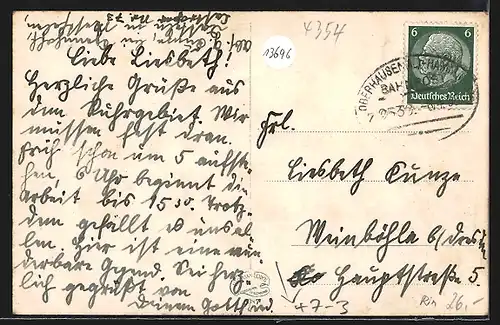 Liebe Liesbeth!
Herzliche Grüße aus
dem Ruhrgebiet. Wir
müssen fest dran.
Früh schon um 5 aufste-
hen, 6 Uhr beginnt die
Arbeit bis 15 30. Trotz-
dem gefällt es uns al-
len. Hier ist eine wun-
derbare Gegend. Sei herz-
lich gegrüßt von
Deinem Gotthard.
4354
13696
6 6
Deutsches Reich
OBERHAUSEN
BAH
Frl.
Liesbeth Kunze
Weinböhla b/Dresden
Hauptstraße 5.
47-3
26,-